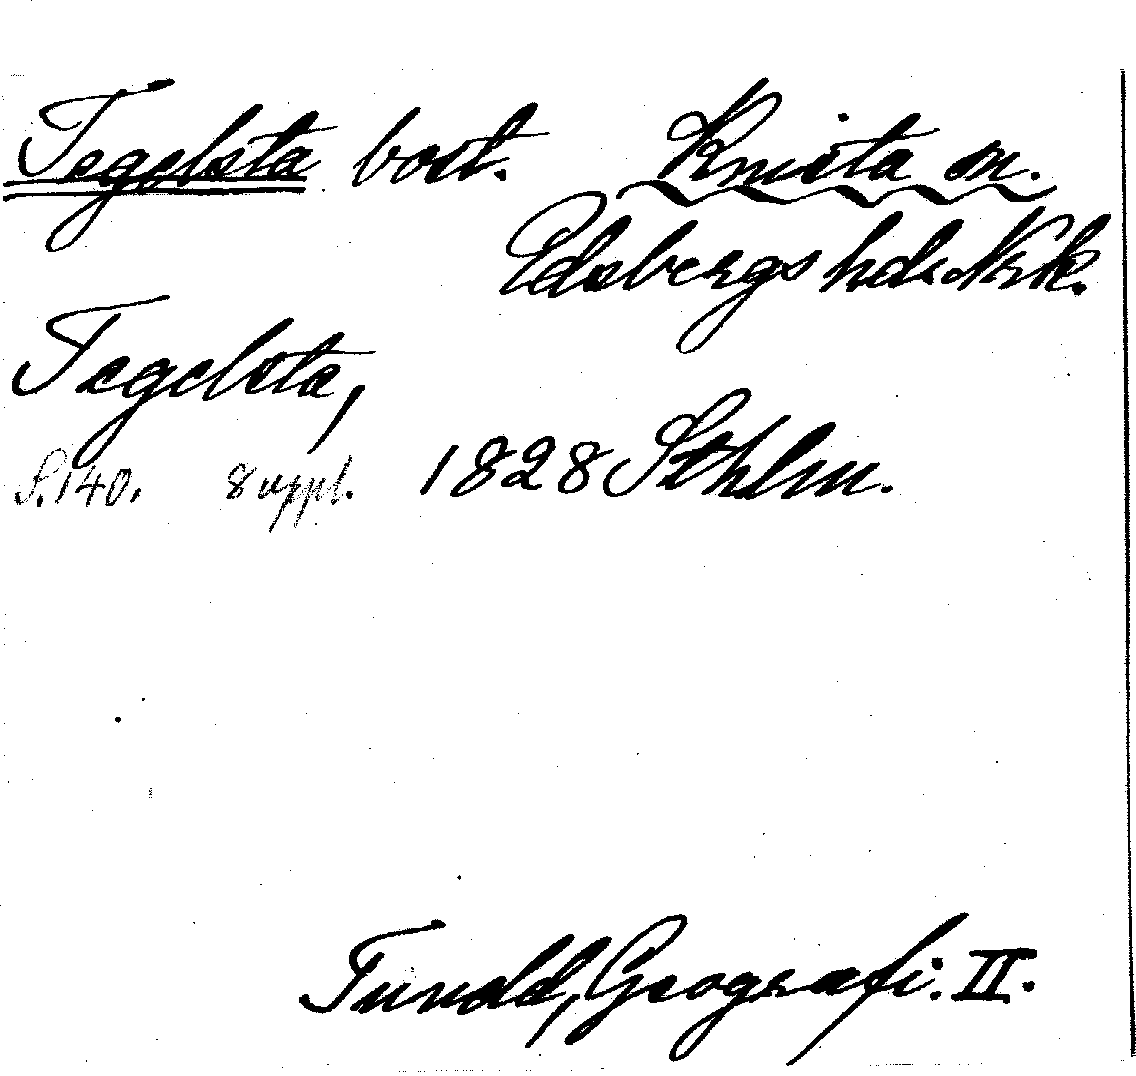 Tegelsta bost. Knista sn.
Edsbergs hd. Nrk.
Tegelsta,
S. 140. 8 uppl. 1828 Sthlm.
Tunald, Geografi. II.